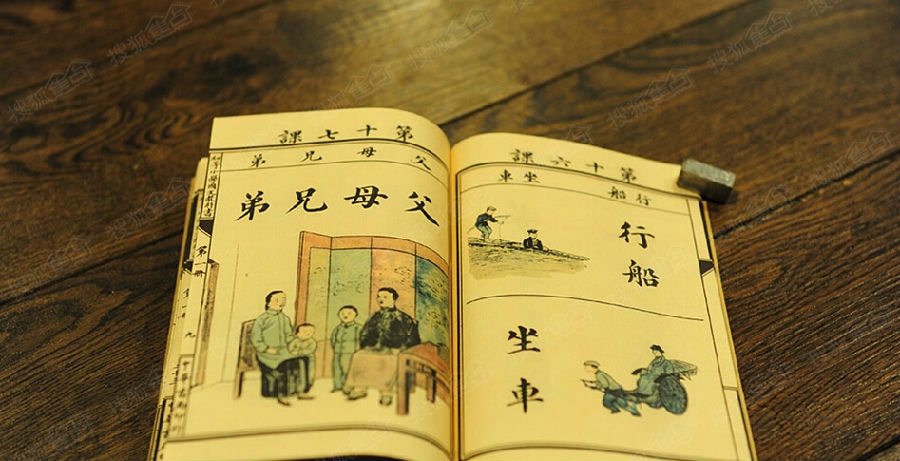 第十六課
行船
坐車
行船
坐車
第十七課
父母兄弟
父母兄弟
第一册